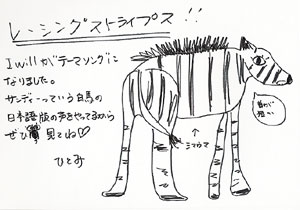 レーシングストライプス!!
I willがテーマソングに
なりました。
サンディーっていう白馬の
日本語版の声をやってるから
ぜひ見てね♡
ひとみ
シマウマ
首が
短い